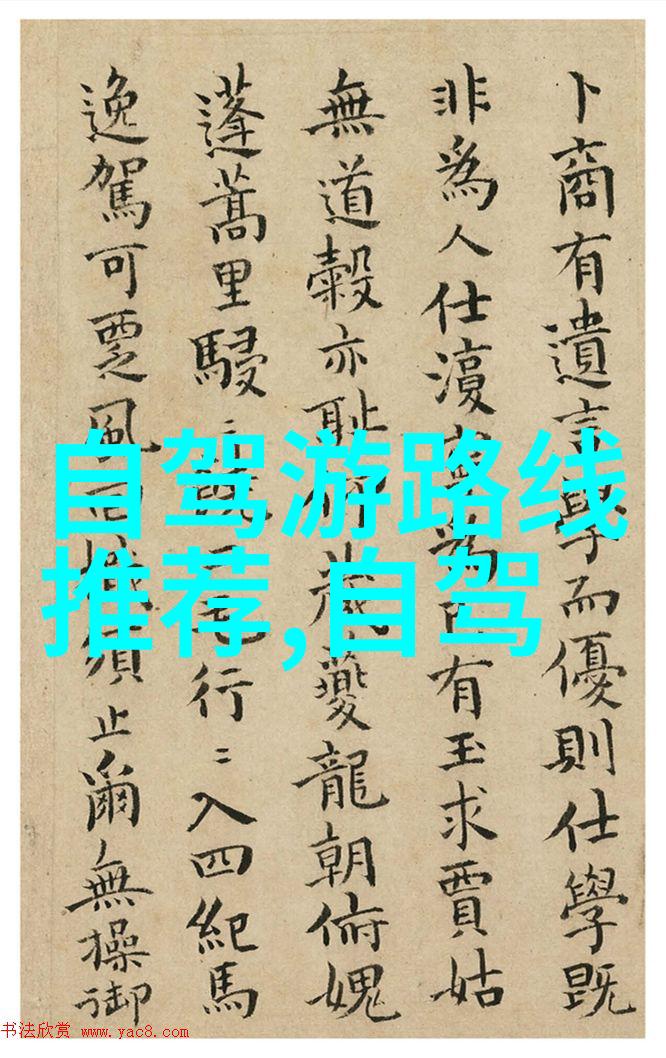 卜商有遺言學而優則仕學既
非為人仕須有玉求賈姑
無道穀亦恥歲夔龍朝俯媿
蓬蒿里駸〻行〻入四紀馬
逸駕可覂風須止爾無操御
自驾游路线
推荐,自驾
书法欣赏 www.yac8.com